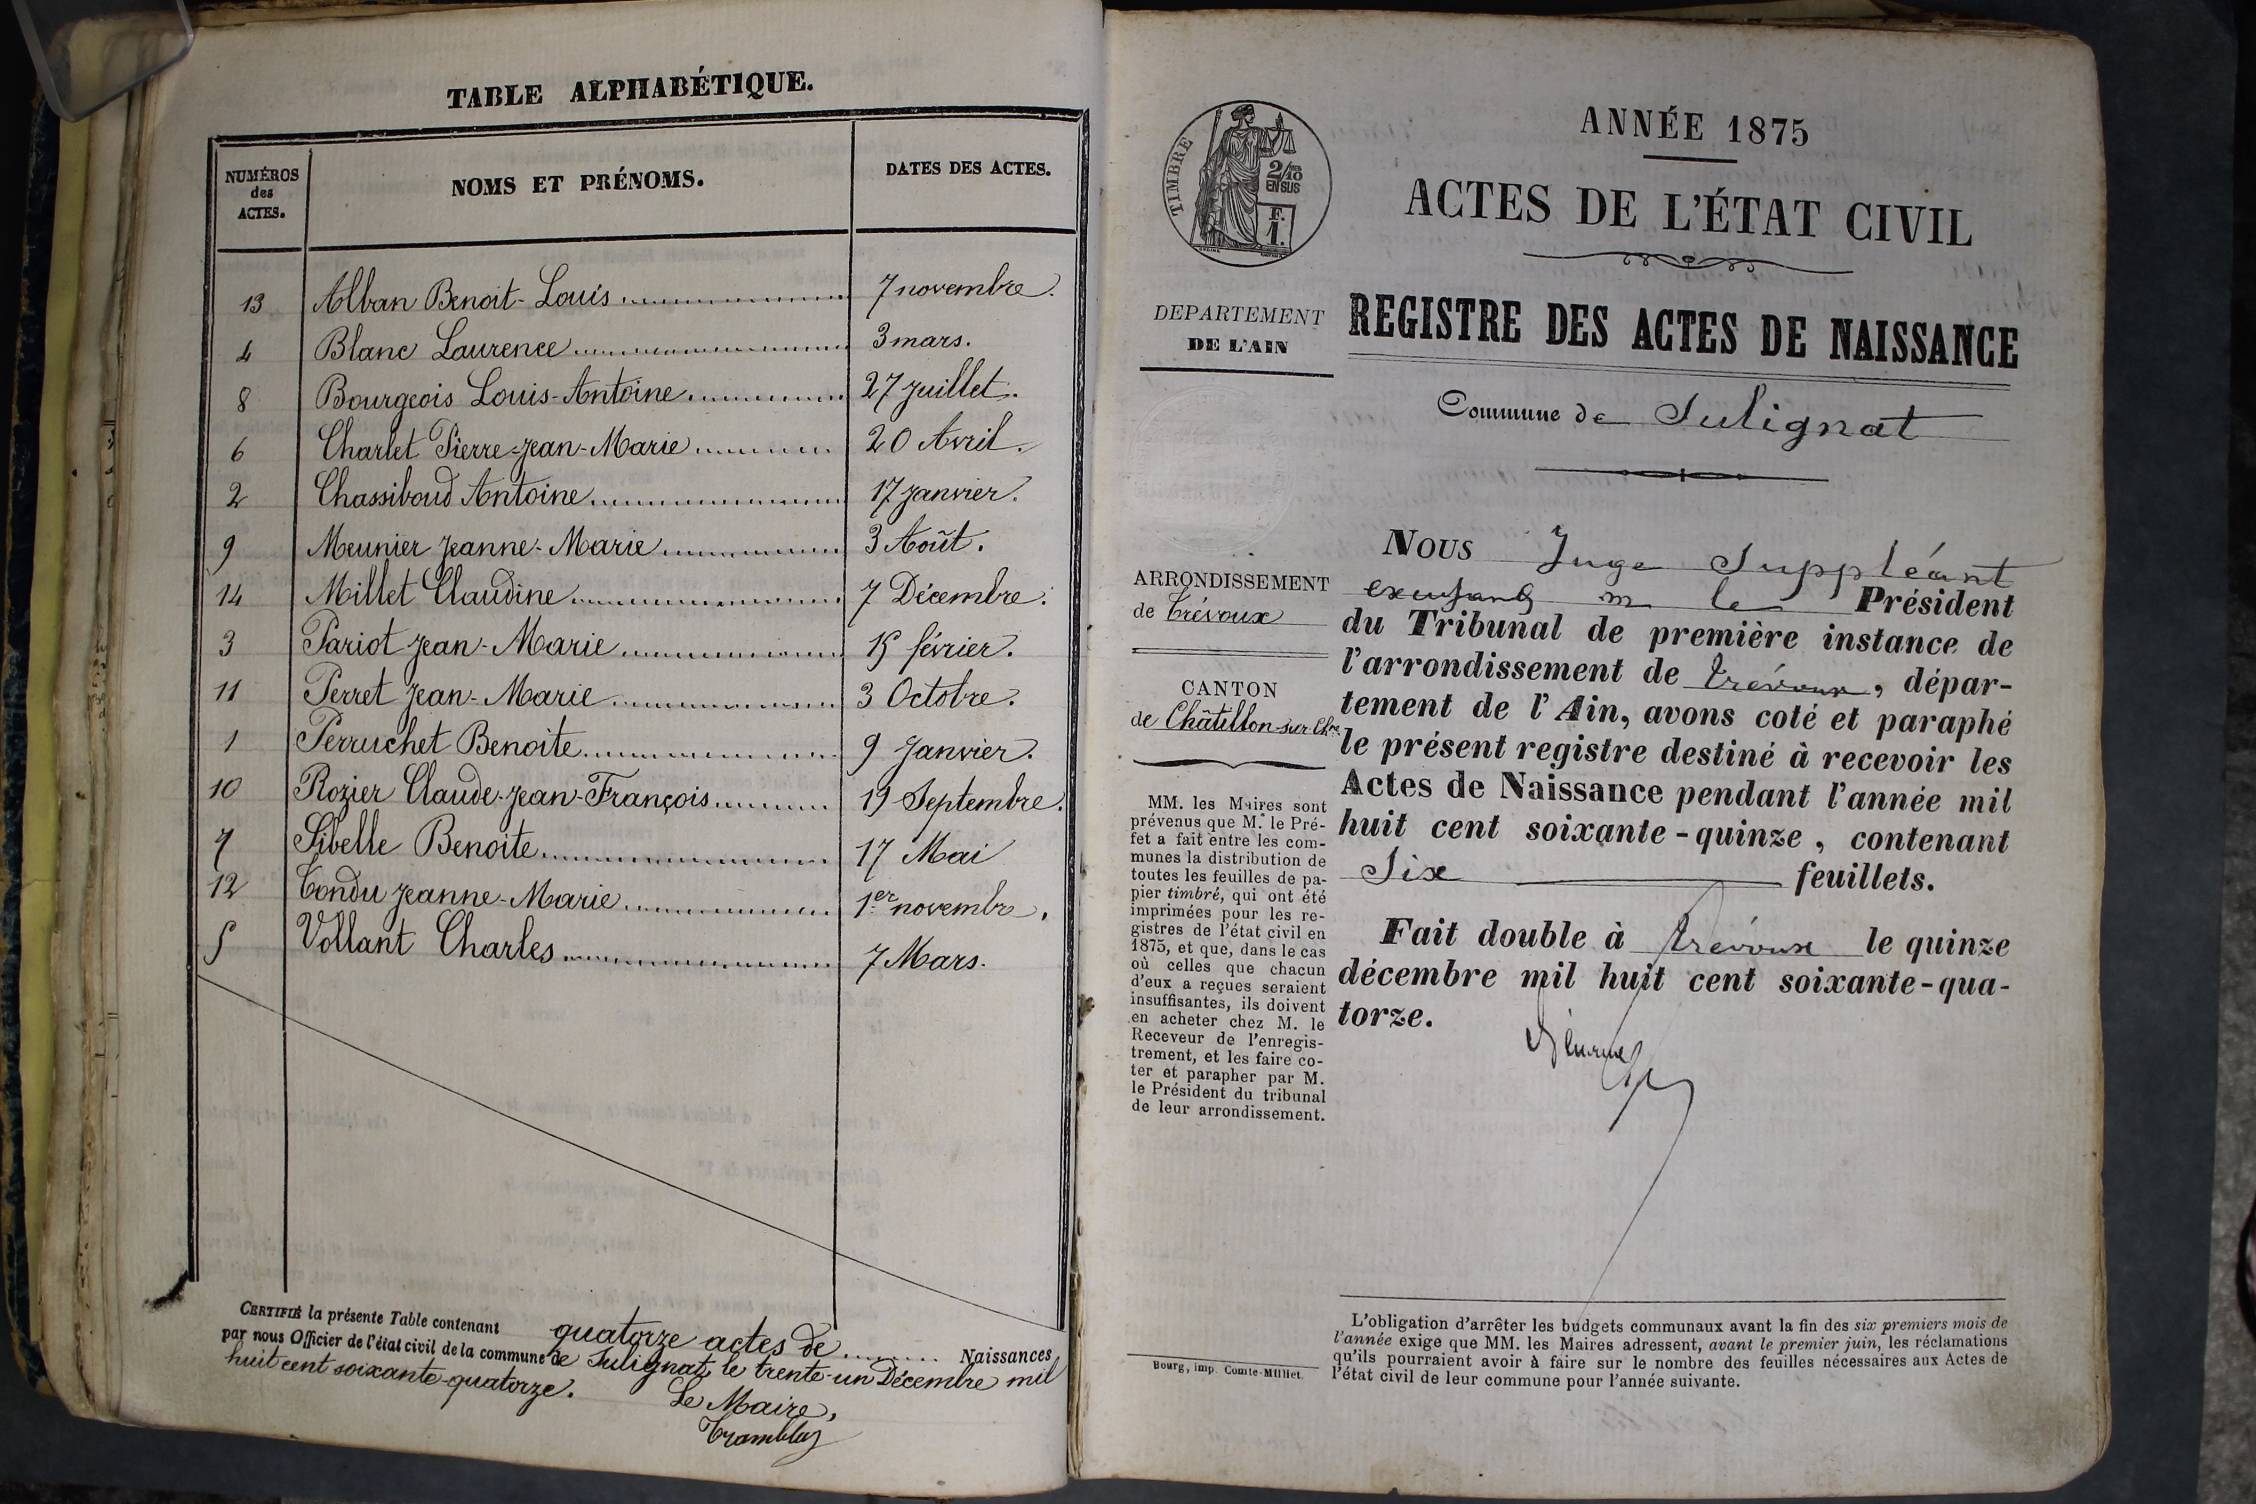 TABLE ALPHABÉTIQUE.
NUMÉROS des ACTES. NOMS ET PRÉNOMS. DATES DES ACTES.
13 Alban Benoit-Louis 7 novembre.
4 Blanc Laurence 3 mars.
8 Bourgeois Louis-Antoine 27 Juillet.
6 Charlet Pierre-Jean-Marie 20 Avril.
2 Chassiboud Antoine 17 Janvier.
9 Meunier Jeanne-Marie 3 Août.
14 Millet Claudine 7 Décembre.
3 Pariot Jean-Marie 15 février.
11 Perret Jean-Marie 3 Octobre.
1 Perruchet Benoite 9 Janvier.
10 Rozier Claude-Jean-François 19 Septembre.
7 Sibelle Benoite 17 Mai
12 Tondu Jeanne-Marie 1er novembre.
5 Vollant Charles 7 Mars.
CERTIFIÉ la présente Table contenant quatorze actes de Naissances,
par nous Officier de l'état civil de la commune de Sulignat, le trente-un Décembre mil
huit cent soixante-quatorze.
Le Maire,
Tramblay
TIMBRE
2/10
EN SUS
F.
1.
DEPARTEMENT
DE L'AIN
ARRONDISSEMENT
de Trévoux
CANTON
de Châtillon-sur-Chne
MM. les Maires sont
prévenus que M. le Pré-
fet a fait entre les com-
munes la distribution de
toutes les feuilles de pa-
pier timbré, qui ont été
imprimées pour les re-
gistres de l'état civil en
1875, et que, dans le cas
où celles que chacun
d'eux a reçues seraient
insuffisantes, ils doivent
en acheter chez M. le
Receveur de l'enregis-
trement, et les faire co-
ter et parapher par M.
le Président du tribunal
de leur arrondissement.
Bourg, imp. Comte-Milliet.
ANNÉE 1875
ACTES DE L'ÉTAT CIVIL
REGISTRE DES ACTES DE NAISSANCE
Commune de Sulignat
NOUS Juge Suppléant
m le Président
du Tribunal de première instance de
l'arrondissement de Trévoux, dépar-
tement de l'Ain, avons coté et paraphé
le présent registre destiné à recevoir les
Actes de Naissance pendant l'année mil
huit cent soixante-quinze, contenant
Six feuillets.
Fait double à Trévoux le quinze
décembre mil huit cent soixante-qua-
torze.
L'obligation d'arrêter les budgets communaux avant la fin des six premiers mois de
l'année exige que MM. les Maires adressent, avant le premier juin, les réclamations
qu'ils pourraient avoir à faire sur le nombre des feuilles nécessaires aux Actes de
l'état civil de leur commune pour l'année suivante.